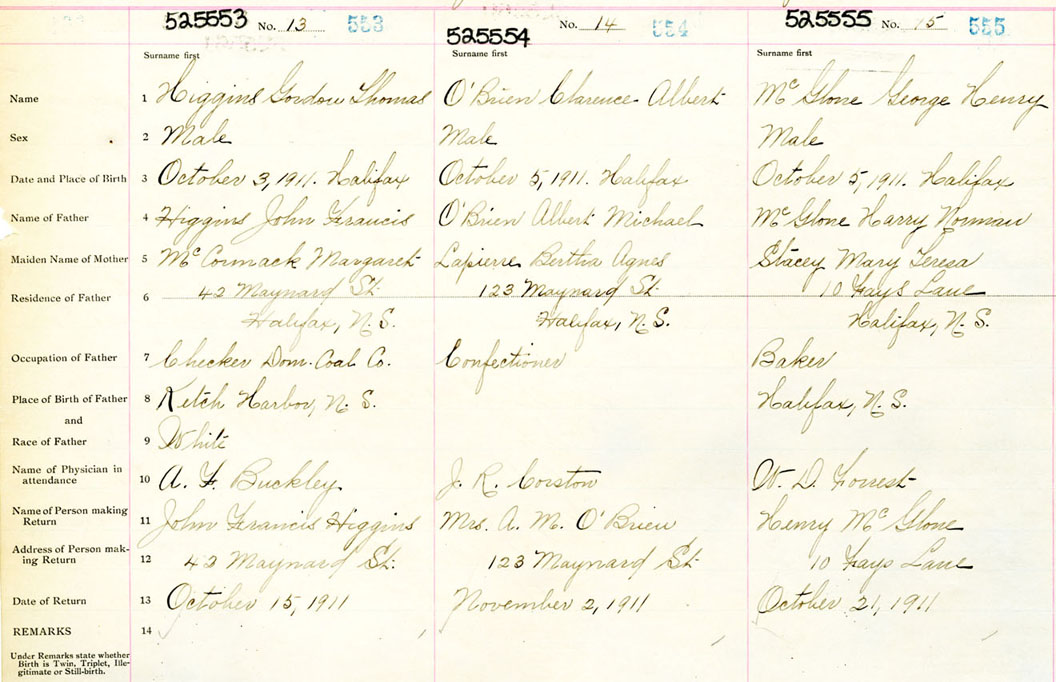 525553 No. 13 553
525554 No. 14 554
525555 No. 15 555
Surname first Surname first Surname first
Name 1 Higgins Gordon Thomas O'Brien Clarence Albert McGlone George Henry
Sex 2 Male Male Male
Date and Place of Birth 3 October 3, 1911. Halifax October 5, 1911. Halifax October 5, 1911. Halifax
Name of Father 4 Higgins John Francis O'Brien Albert Michael McGlone Harry Norman
Maiden Name of Mother 5 McCormack Margaret Lapierre Bertha Agnes Stacey Mary Teresa
Residence of Father 6 42 Maynard St. 123 Maynard St. 10 Fays Lane
Halifax, N.S. Halifax, N.S. Halifax, N.S.
Occupation of Father 7 Checker Dom. Coal Co. Confectioner Baker
Place of Birth of Father 8 Ketch Harbor, N.S. Halifax, N.S.
and
Race of Father 9 White
Name of Physician in attendance 10 A. F. Buckley J. R. Corston W. D. Forrest
Name of Person making Return 11 John Francis Higgins Mrs. A. M. O'Brien Henry McGlone
Address of Person making Return 12 42 Maynard St. 123 Maynard St. 10 Fays Lane
Date of Return 13 October 15, 1911 November 2, 1911 October 21, 1911
REMARKS 14
Under Remarks state whether
Birth is Twin, Triplet, Ille-
gitimate or Still-birth.